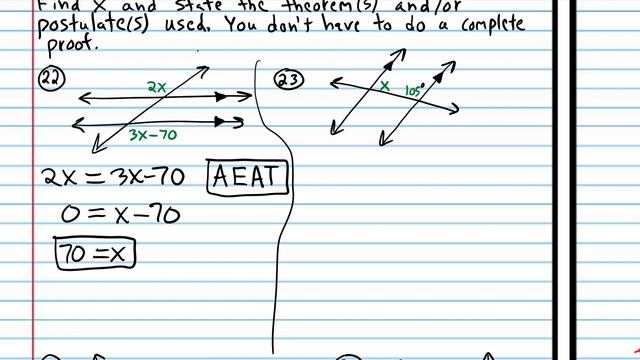 Find x and state the theorem(s) and/or
postulate(s) used. You don't have to do a complete
proof.
22
2x
3x-70
23
x 105°
2x = 3x-70 AEAT
0 = x-70
70 = x